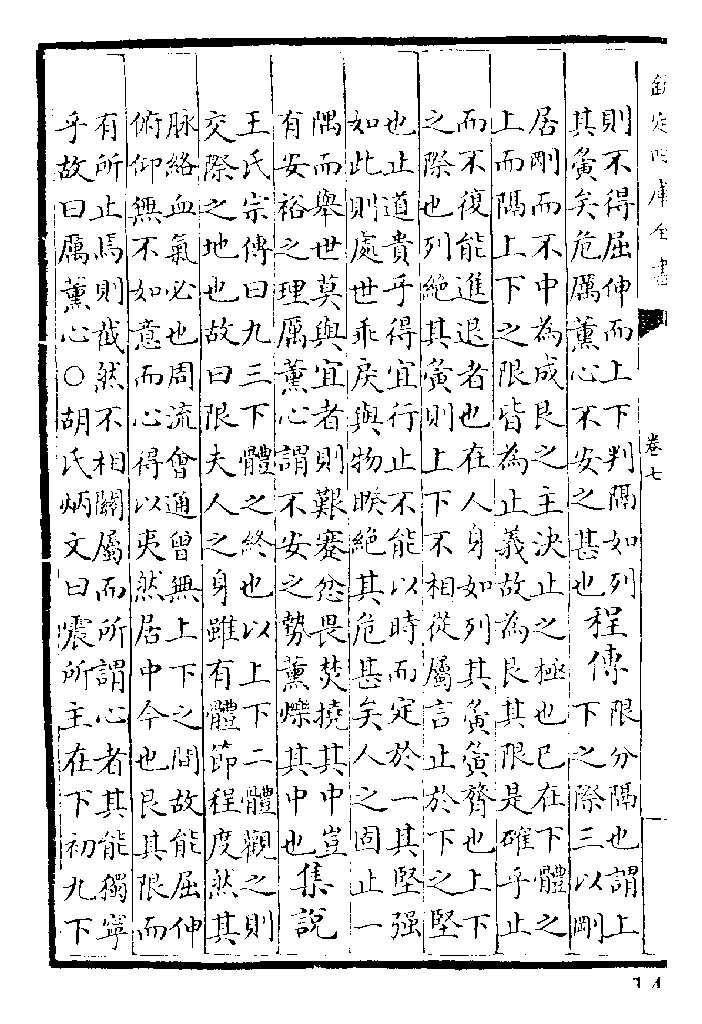 欽定四庫全書
卷七
則不得屈伸而上下判隔如列
其夤矣危厲薰心不安之甚也
程傳
限分隔也謂上
下之際三以剛
居剛而不中為成艮之主決止之極也已在下體之
上而隔上下之限皆為止義故為艮其限是確乎止
而不復能進退者也在人身如列其夤夤膂也上下
之際也列絕其夤則上下不相從屬言止於下之堅
也止道貴乎得宜行止不能以時而定於一其堅强
如此則處世乖戾與物睽絕其危甚矣人之固止一
隅而舉世莫與宜者則艱蹇忿畏焚撓其中豈
有安裕之理厲薰心謂不安之勢薰爍其中也
集說
王氏宗傳曰九三下體之終也以上下二體觀之則
交際之地也故曰限夫人之身雖有體節程度然其
脉絡血氣必也周流會通曾無上下之間故能屈伸
俯仰無不如意而心得以夷然居中今也艮其限而
有所止焉則截然不相關屬而所謂心者其能獨寧
乎故曰厲薰心○胡氏炳文曰震所主在下初九下
14